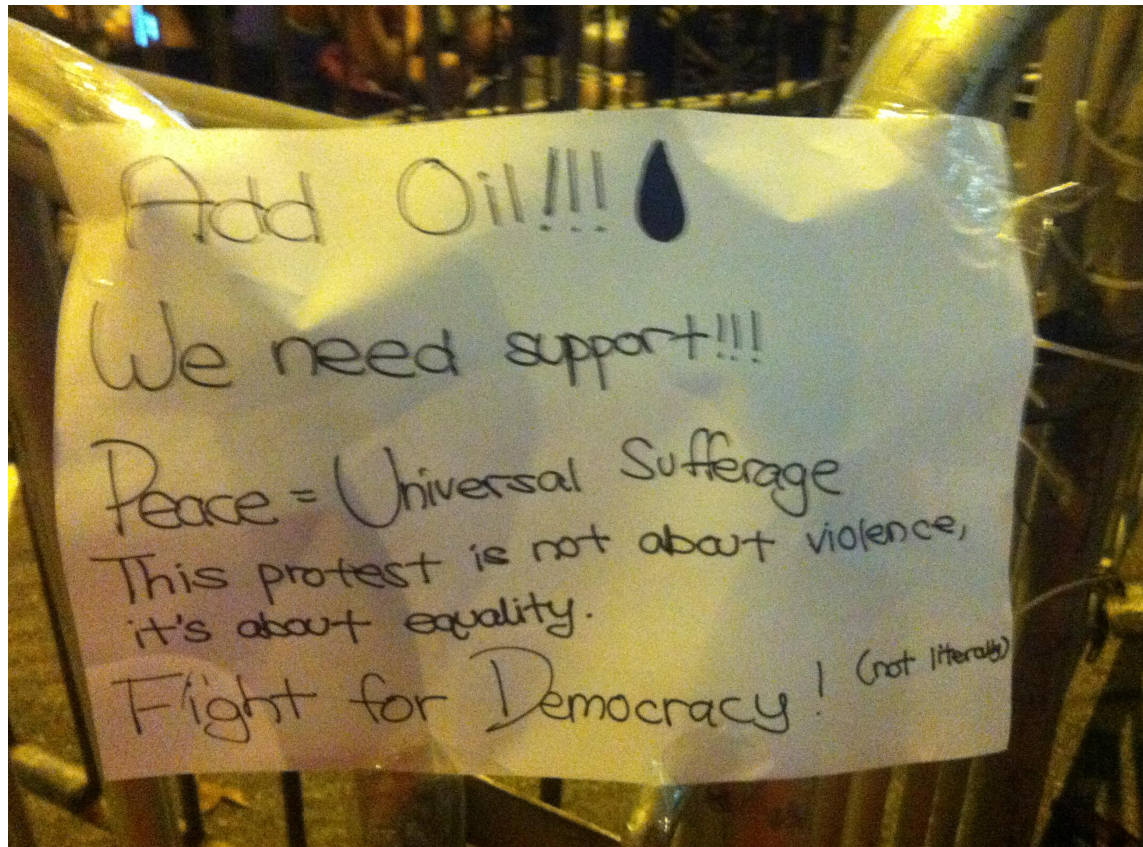 Add Oil!!!
We need support!!!
Peace = Universal Sufferage
This protest is not about violence,
it's about equality.
Fight for Democracy! (not literally)